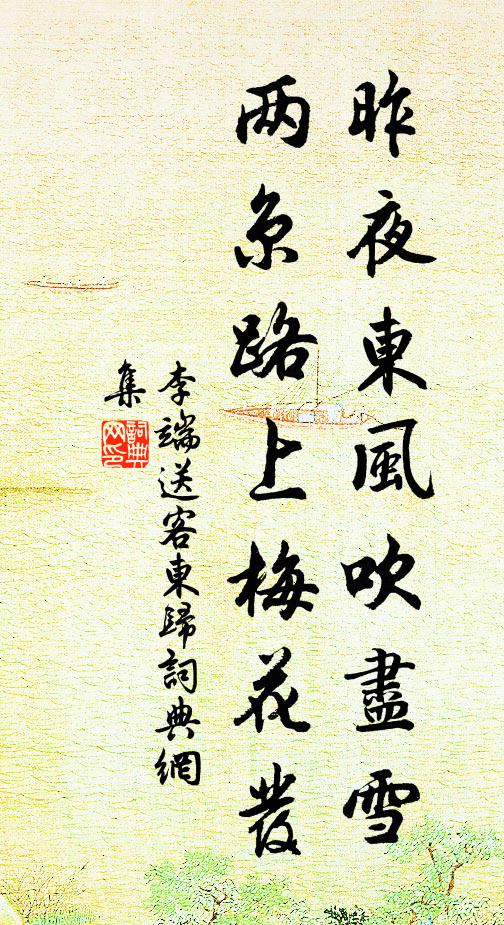 昨夜東風吹盡雪
两京路上梅花發
李端送客東歸詞典網
集
詞典网印